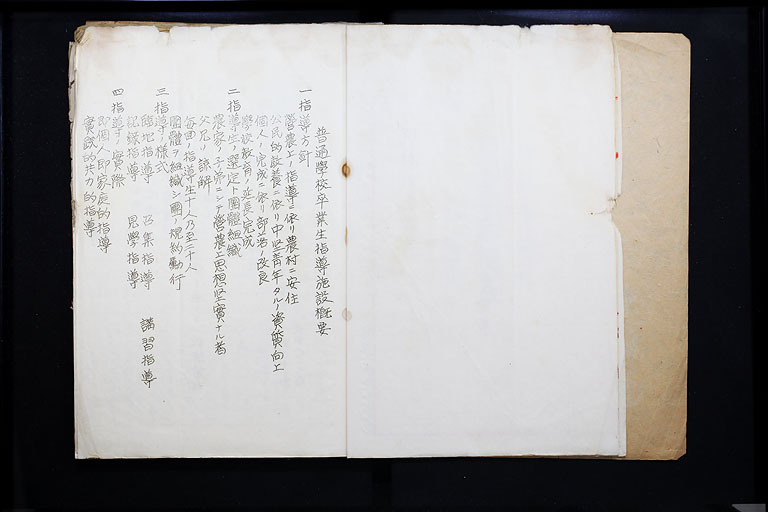 普通學校卒業生指導施設槪要
一 指導方針
營農上ノ指導ニ依リ農村ニ安住
公民的敎養ニ依リ中堅靑年タルノ資質向上
個人ノ完成ニ依リ部落ノ改良
學校敎育ノ延長完成
二 指導生ノ選定ト團體組織
農家ノ子弟ニシテ營農上思想堅實ナル者
父兄ノ諒解
每回ノ指導生十人乃至二十人
團體ヲ組織シ團ノ規約勵行
三 指導ノ樣式
臨地指導 召集指導 講習指導
記錄指導 見學指導
四 指導ノ實際
卽個人卽家庭的指導
實踐的共力的指導